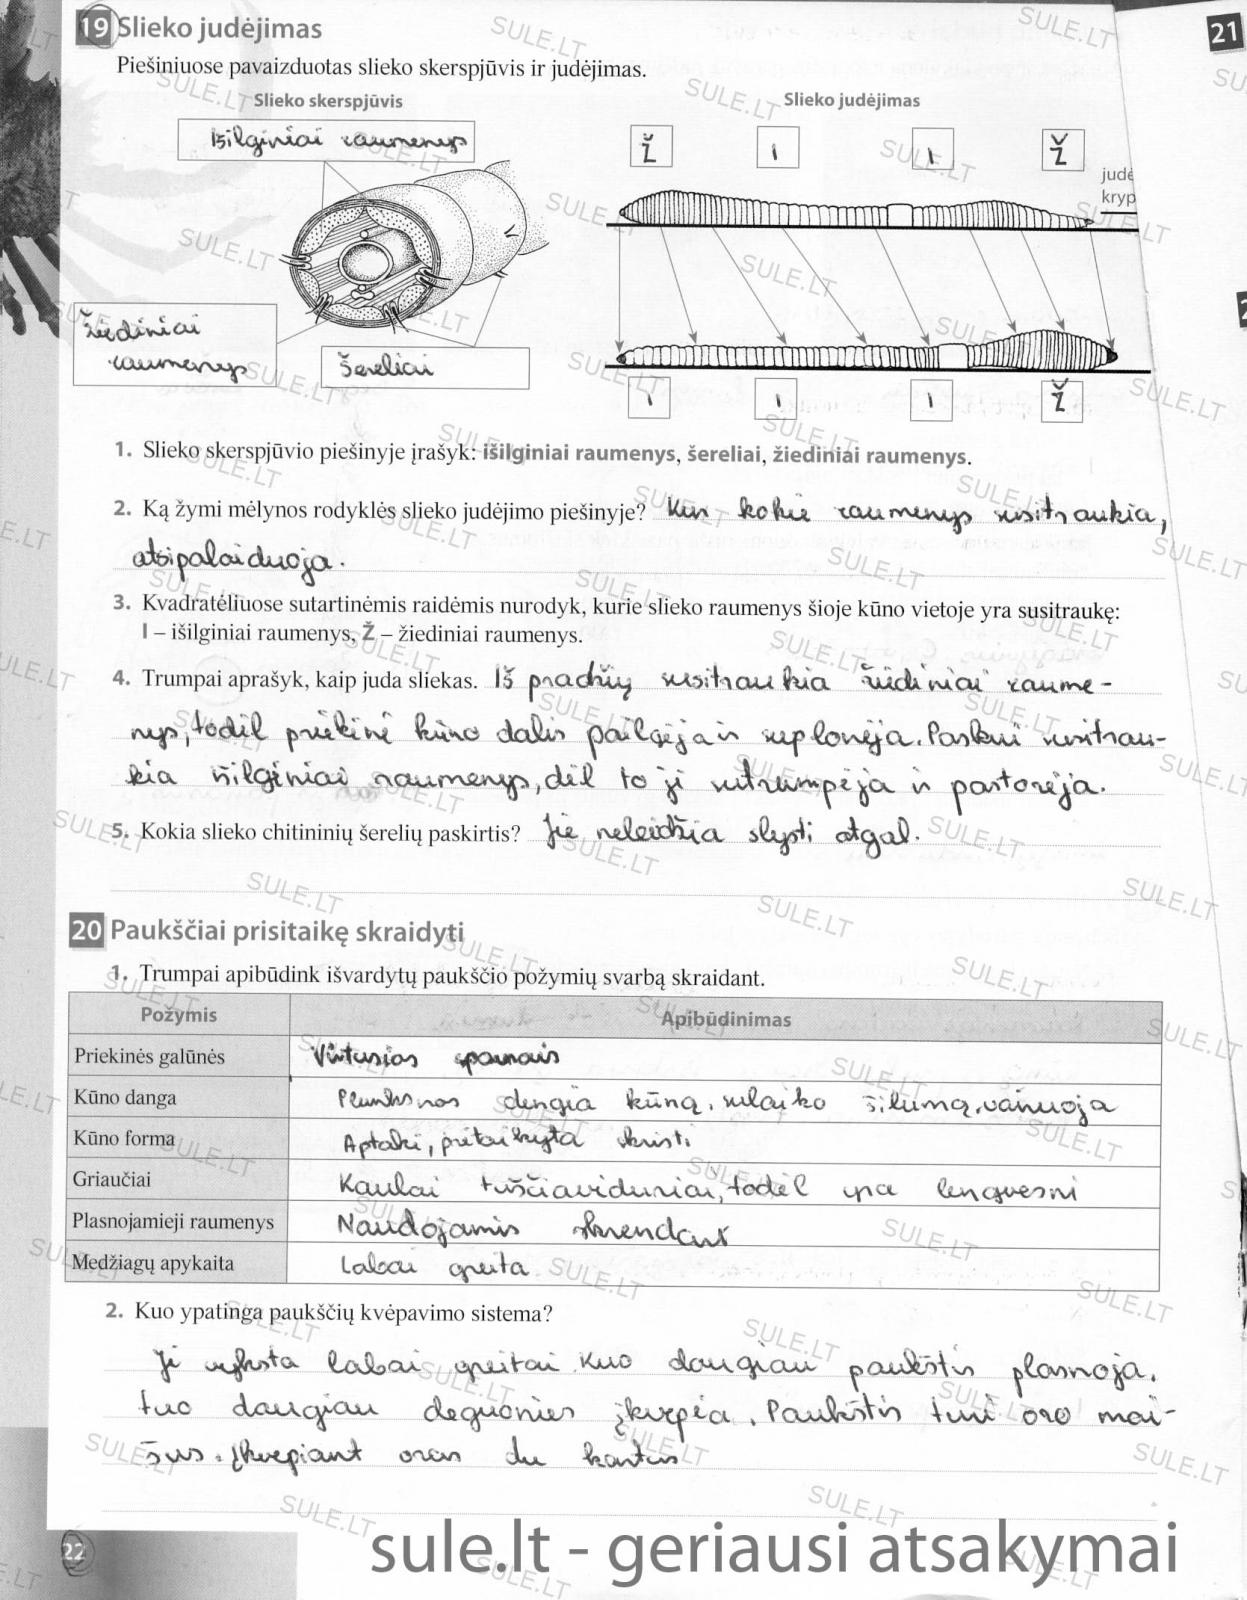 19 Slieko judėjimas
21
Piešiniuose pavaizduotas slieko skerspjūvis ir judėjimas.
Slieko skerspjūvis
Slieko judėjimas
Išilginiai raumenys
Ž I I Ž
judė
kryp
Žiediniai
raumenys
Šereliai
I I I Ž
1. Slieko skerspjūvio piešinyje įrašyk: išilginiai raumenys, šereliai, žiediniai raumenys.
2. Ką žymi mėlynos rodyklės slieko judėjimo piešinyje? Kur kokie raumenys susitraukia,
atsipalaiduoja.
3. Kvadratėliuose sutartinėmis raidėmis nurodyk, kurie slieko raumenys šioje kūno vietoje yra susitraukę:
I – išilginiai raumenys, Ž – žiediniai raumenys.
4. Trumpai aprašyk, kaip juda sliekas. Iš pradžių susitraukia žiediniai raume-
nys, todėl priekinė kūno dalis pailgėja ir suplonėja. Paskui susitrau-
kia išilginiai raumenys, dėl to ji sutrumpėja ir pastorėja.
5. Kokia slieko chitininių šerelių paskirtis? Jie neleidžia slysti atgal.
20 Paukščiai prisitaikę skraidyti
1. Trumpai apibūdink išvardytų paukščio požymių svarbą skraidant.
Požymis Apibūdinimas
Priekinės galūnės Virtusios sparnais
Kūno danga Plunksnos dengia kūną, sulaiko šilumą, vairuoja
Kūno forma Aptaki, pritaikyta skristi
Griaučiai Kaulai tuščiaviduriai, todėl yra lengvesni
Plasnojamieji raumenys Naudojamis skrendant
Medžiagų apykaita Labai greita
2. Kuo ypatinga paukščių kvėpavimo sistema?
Ji vyksta labai greitai. Kuo daugiau paukštis plasnoja,
tuo daugiau deguonies įkvepia. Paukštis turi oro mai-
šus. Įkvepiant oras du kartus
22
sule.lt - geriausi atsakymai
SULE.LT